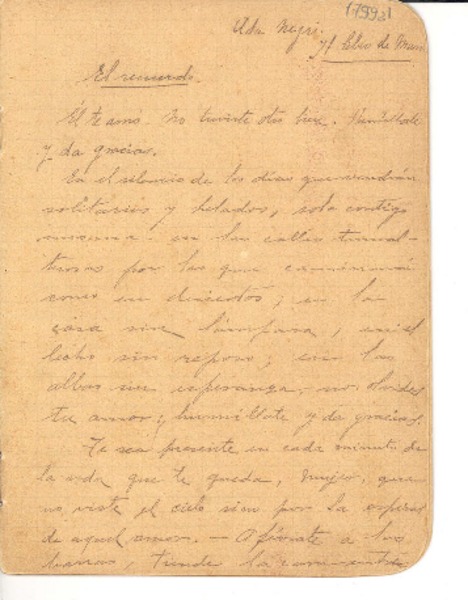 (7993)
Ada Negri
El libro de Mara
El recuerdo.
Él te amó. No tuviste otro bien. Humíllate
y da gracias.
En el silencio de los días que vendrán
solitarios y helados, sola contigo
misma. en las calles tumul-
tuosas por las que caminarás
como en desiertos; en la
casa sin lámpara, en el
lecho sin reposo; en las
albas sin esperanza, no olvides
tu amor; humíllate y da gracias.
Te sea presente en cada minuto de
la vida que te queda, mujer, que
no viste el cielo sino por la espera
de aquel amor. — Aférrate a las
barras, tiende la